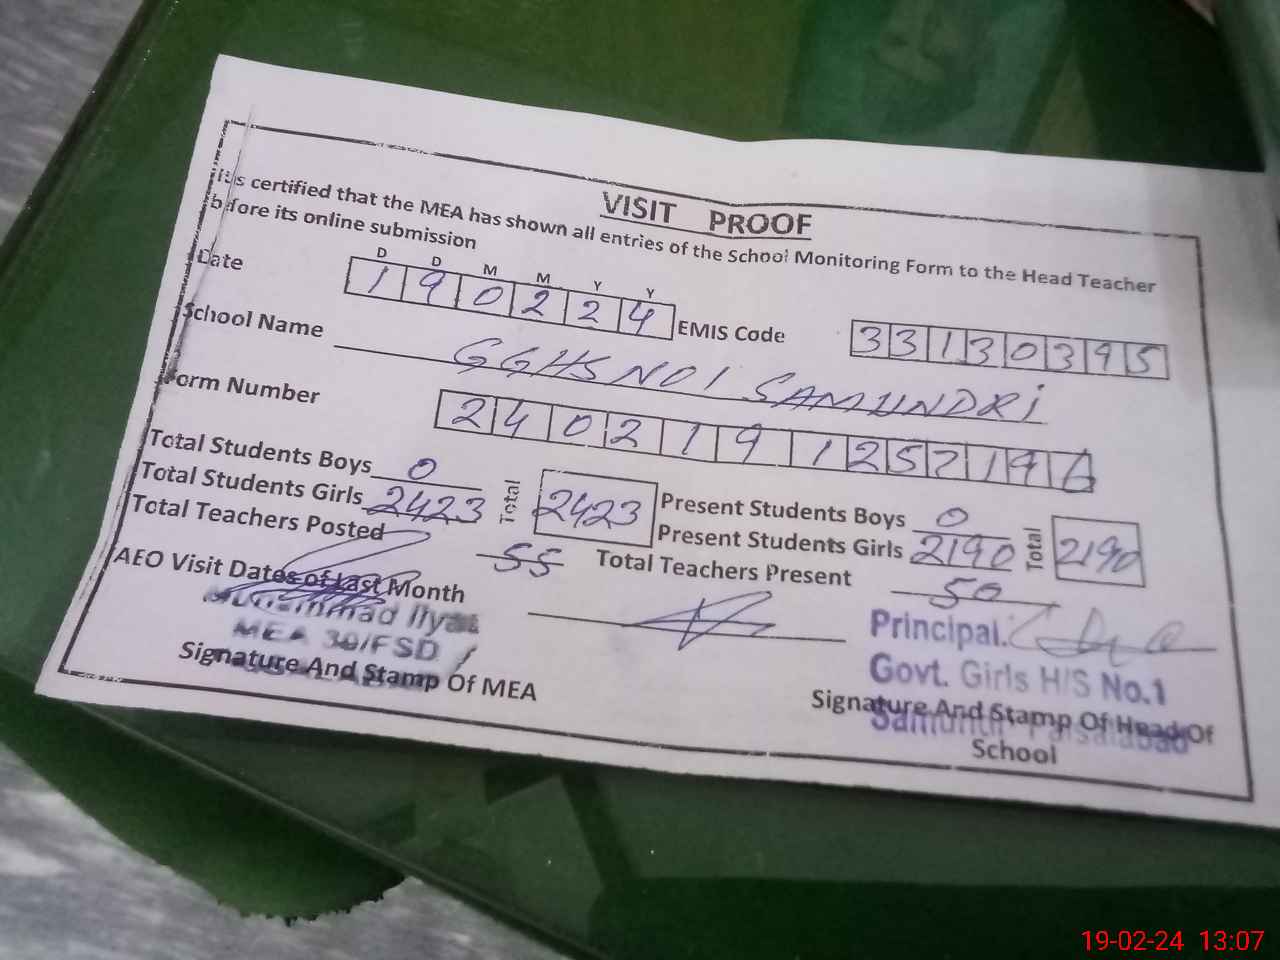 VISIT PROOF
It is certified that the MEA has shown all entries of the School Monitoring Form to the Head Teacher
before its online submission
D D M M Y Y
Date 1 9 0 2 2 4 EMIS Code 3 3 1 3 0 3 9 5
School Name GGHS NO 1 SAMUNDRI
Form Number 2 4 0 2 1 9 1 2 5 7 1 9 6
Total Students Boys 0 Present Students Boys 0
Total Students Girls 2423 Total 2423 Present Students Girls 2190 Total 2190
Total Teachers Posted 55 Total Teachers Present 50
AEO Visit Dates of Last Month
Muhammad Ilyas
MEA 30/FSD
Signature And Stamp Of MEA
Principal.
Govt. Girls H/S No.1
Samundri Faisalabad
Signature And Stamp Of Head Of
School
19-02-24 13:07